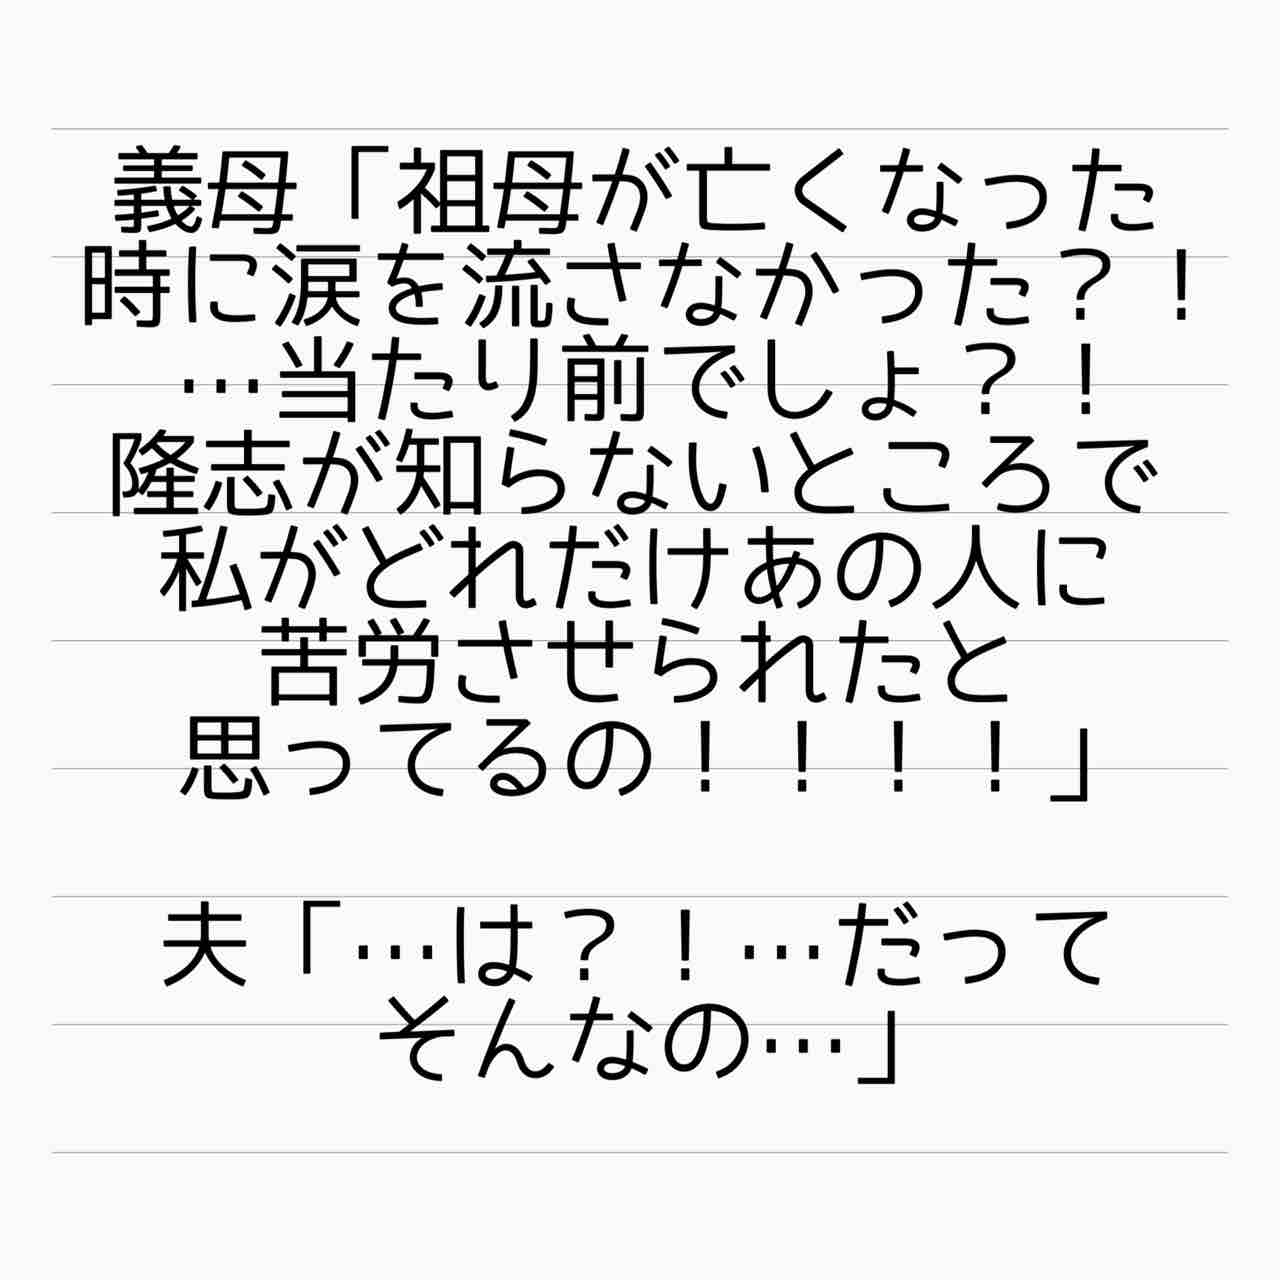 義母「祖母が亡くなった
時に涙を流さなかった？！
…当たり前でしょ？！
隆志が知らないところで
私がどれだけあの人に
苦労させられたと
思ってるの！！！！」
夫「…は？！…だって
そんなの…」